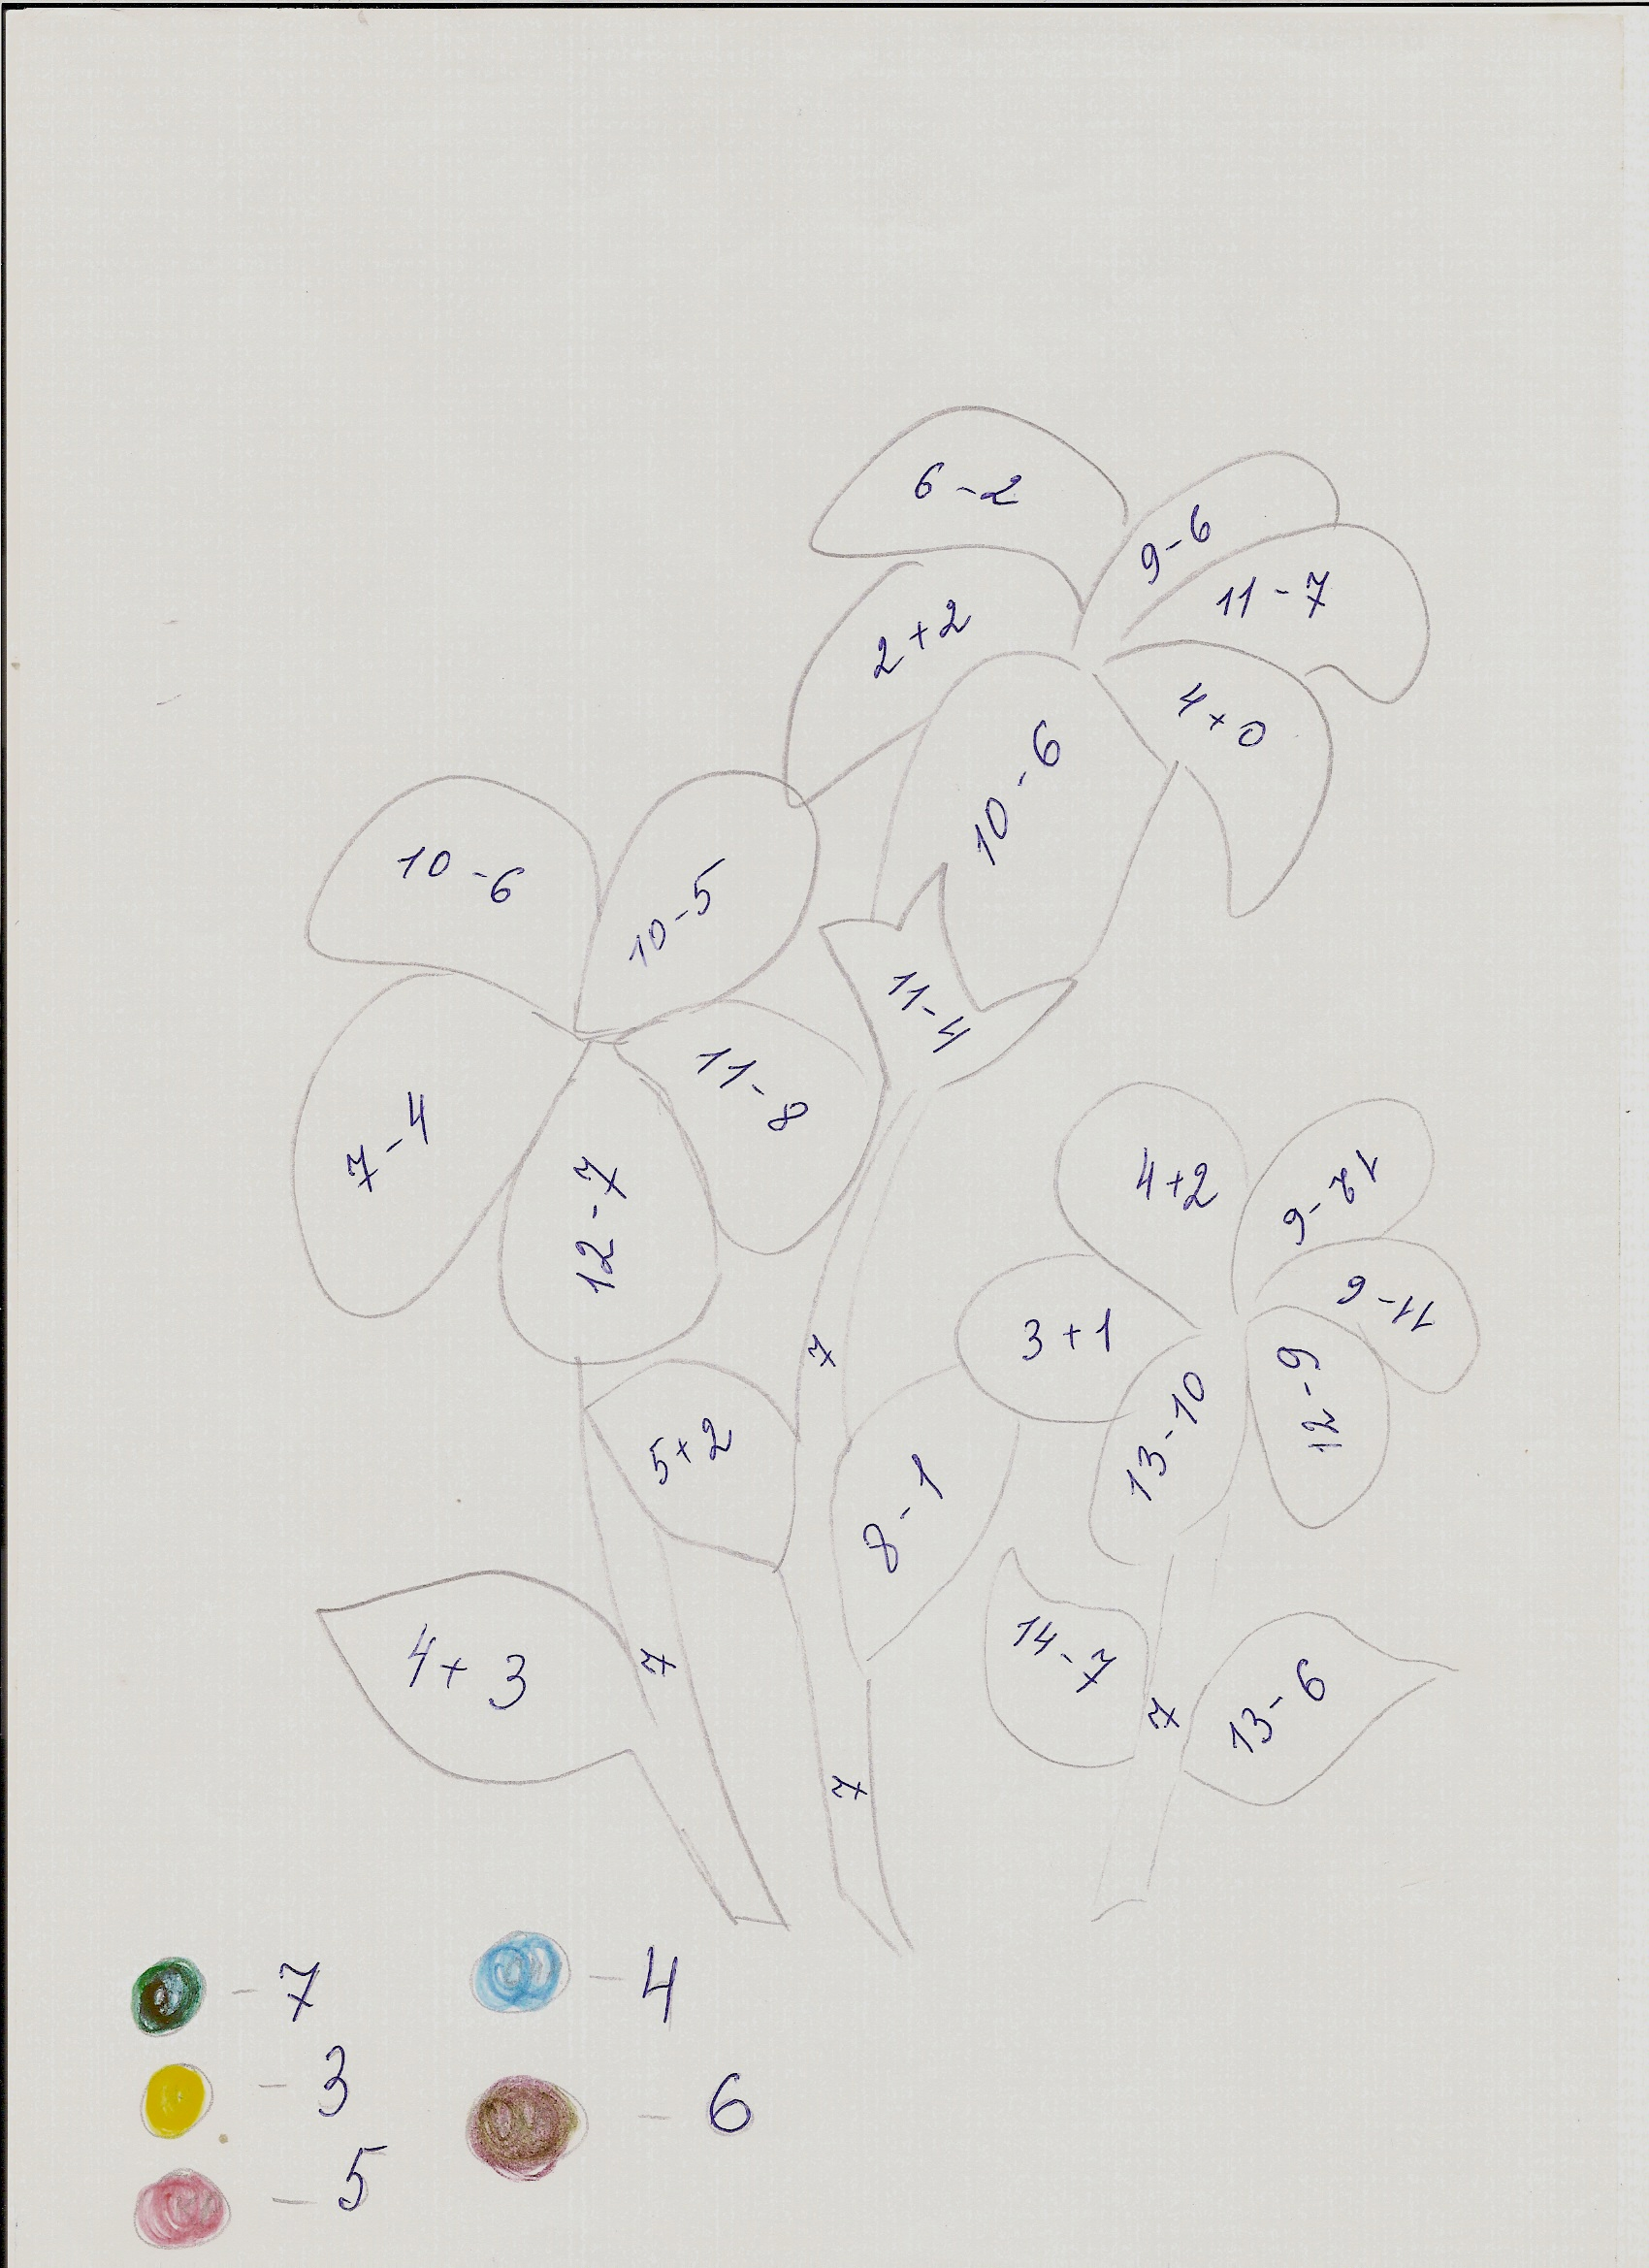 6-2
9-6
11-7
2+2
4+0
10-6
10-6
10-5
11-4
7-4
11-8
12-7
4+2
12-9
11-6
3+1
13-10
12-9
7
5+2
8-1
4+3
7
14-7
7
13-6
7
-7
-4
-3
-6
-5